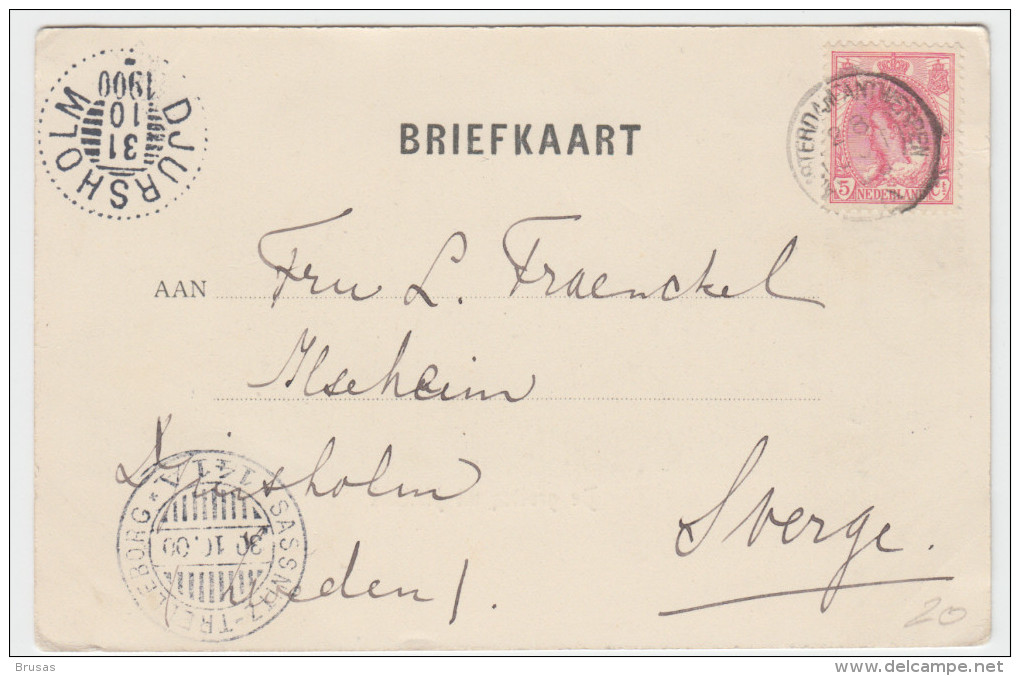 DJURSHOLM
31
10
1900
BRIEFKAART
ANTWERPEN
5 NEDERLAND Ct
AAN Fru L. Fraenckel
Ilseheim
Djursholm
Sverge.
(Sweden).
SASSNITZ-TRELLEBORG
30.10.00
20
Brusas
www.delcampe.net